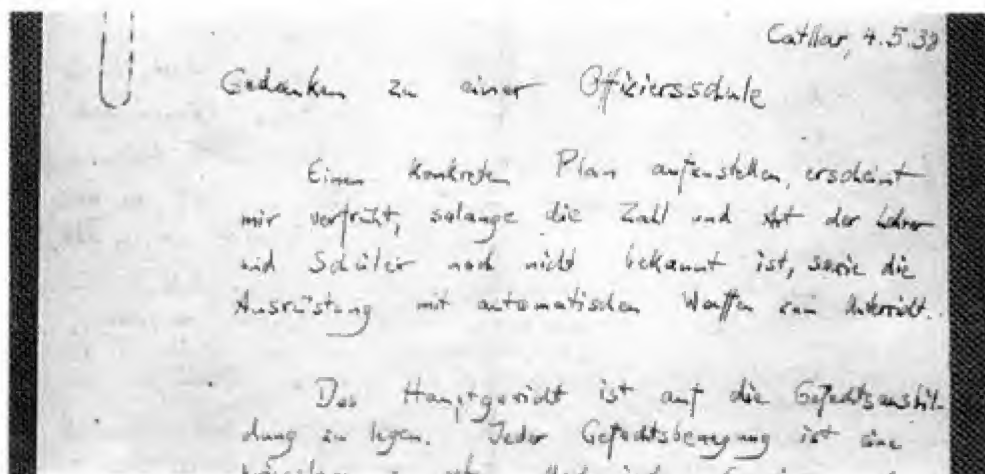 Catllar, 4.5.38
Gedanken zu einer Offiziersschule
Einen konkreten Plan aufzustellen, erscheint
mir verfrüht, solange die Zahl und Art der Lehrer
und Schüler noch nicht bekannt ist, sowie die
Ausrüstung mit automatischen Waffen zum Unterricht.
Das Hauptgewicht ist auf die Gefechtsausbil-
dung zu legen. Jeder Gefechtsbewegung ist eine